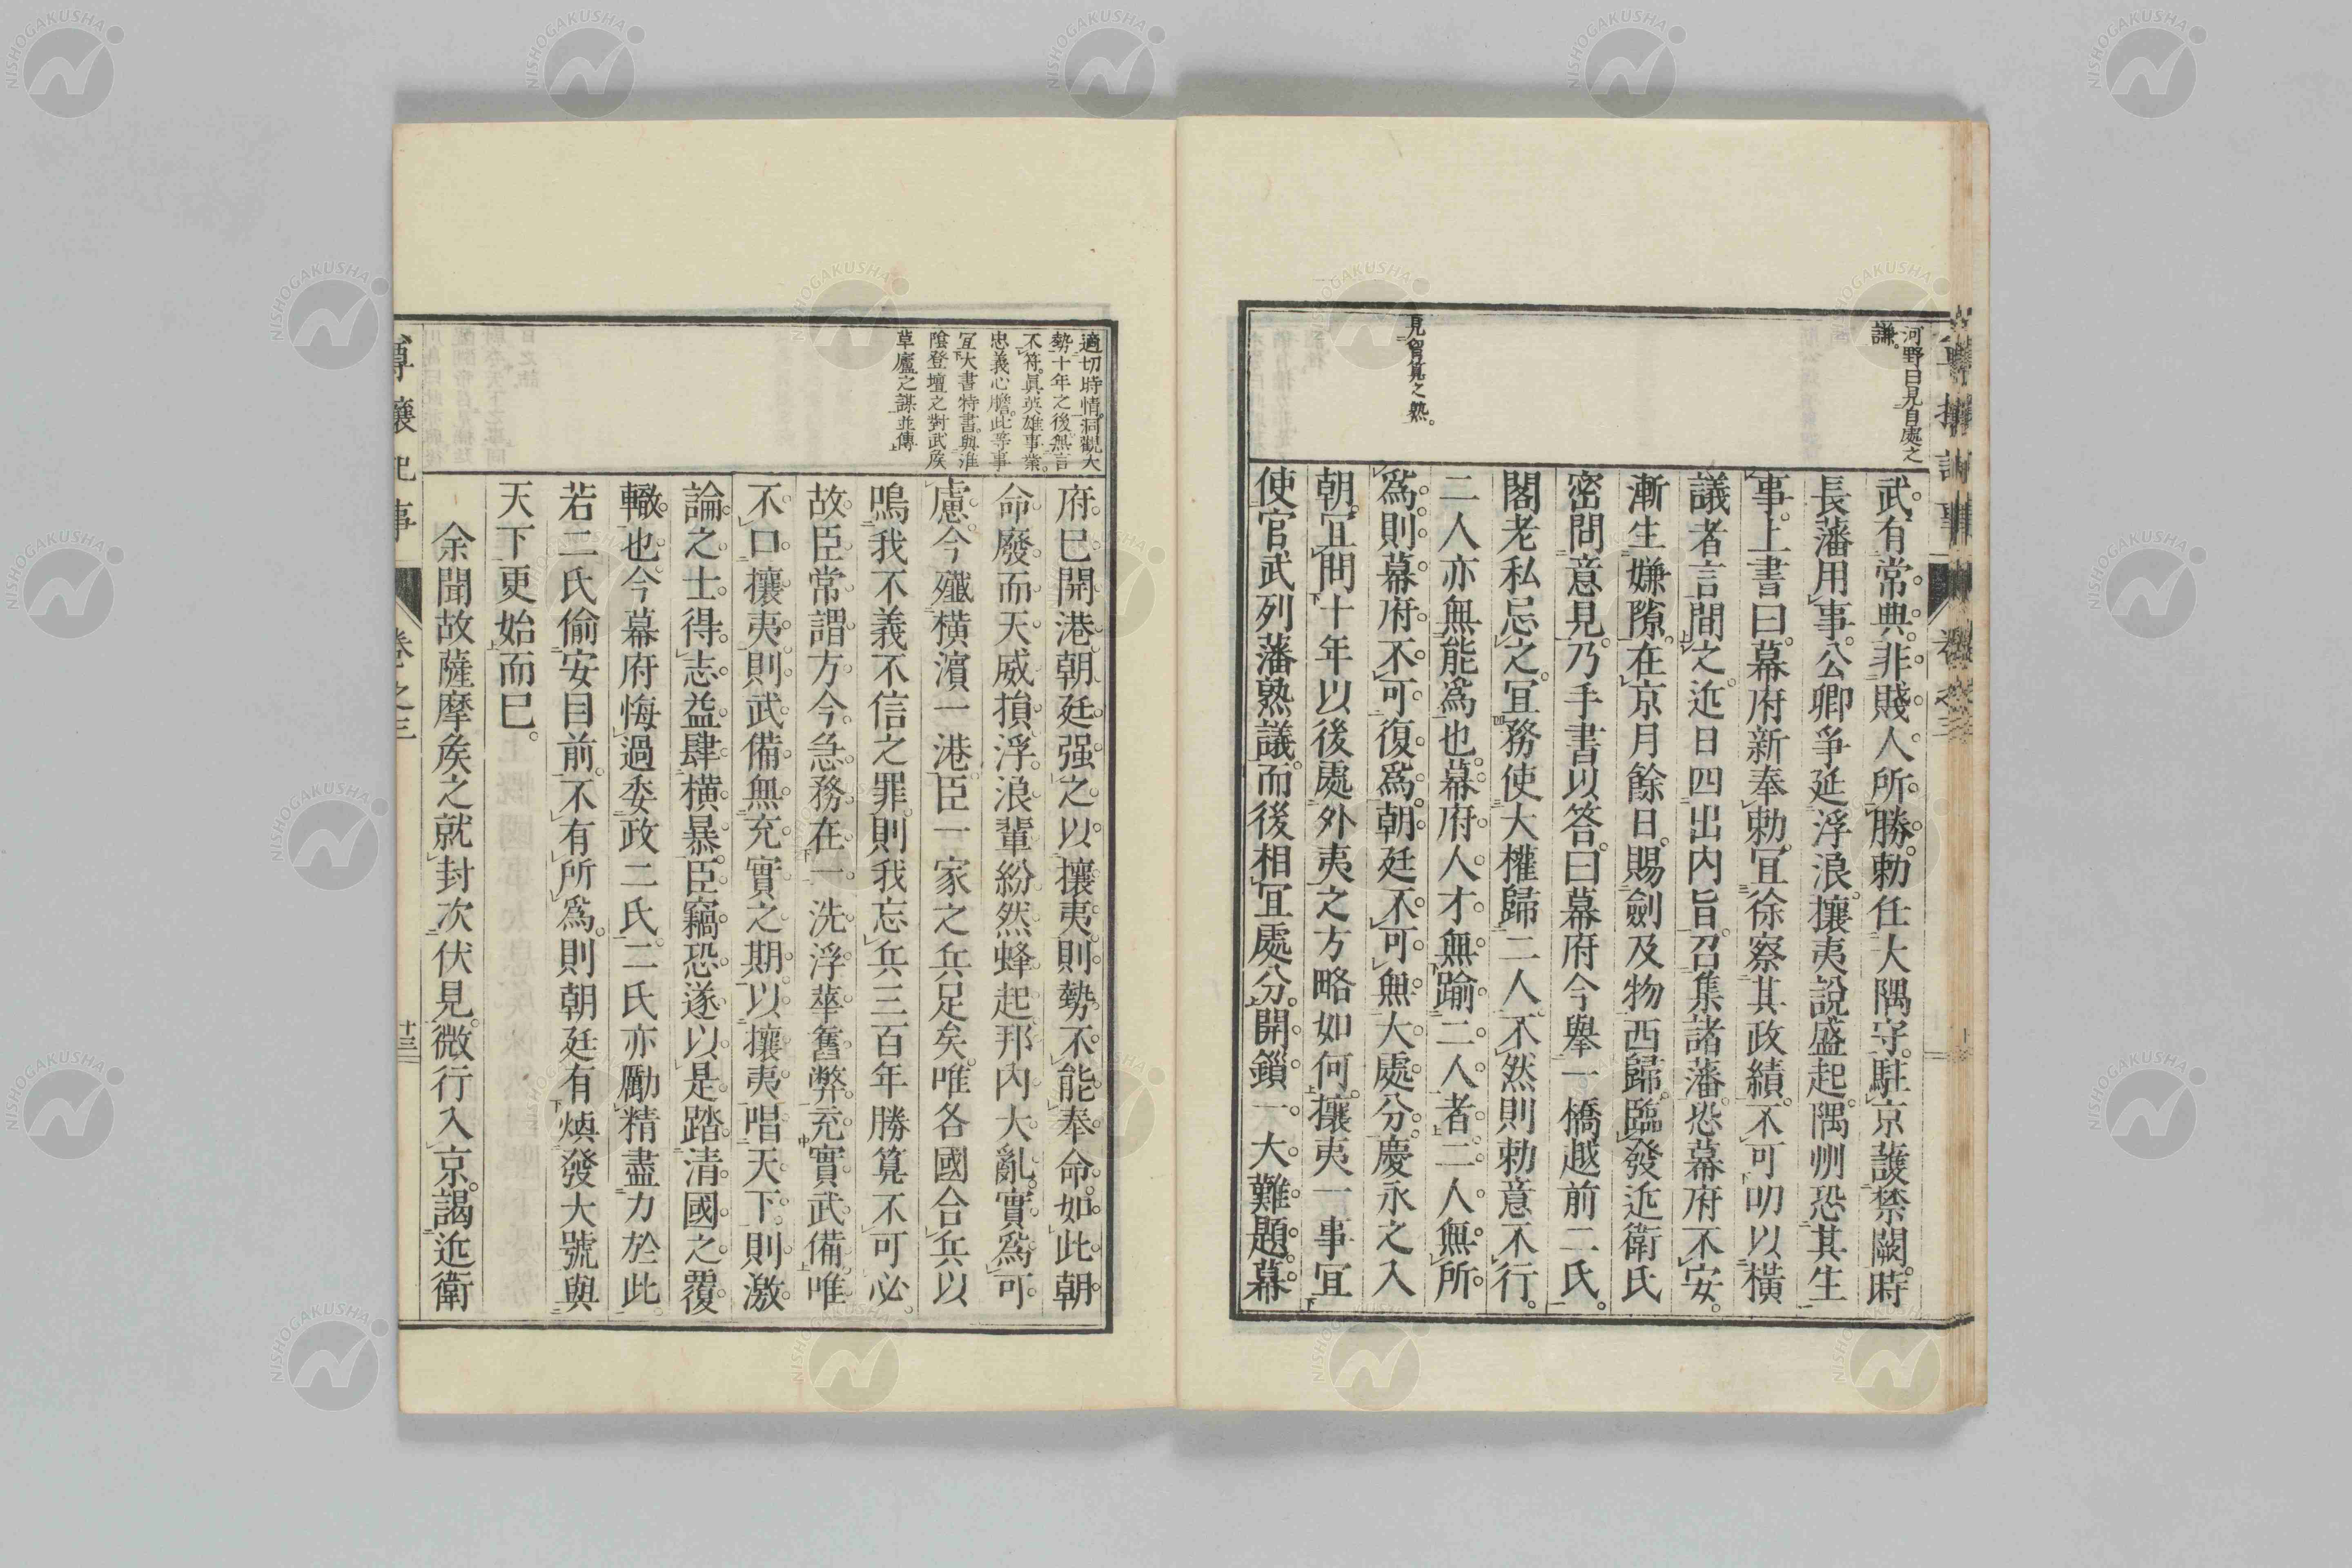 河野曰見自處之
謙。
見貿覓之熟。
武有常典。非賤人所勝。勅任大隅守。駐京護禁闕。時
長藩用事。公卿爭延浮浪。攘夷說盛起。隅州恐其生
事。上書曰。幕府新奉勅。宜徐察其政績。不可叨以橫
議者言間之。近日四出内旨。召集諸藩。恐幕府不安。
漸生嫌隙。在京月餘日。賜劍及物西歸。臨發近衛氏
密問意見。乃手書以答。曰幕府今舉一橋越前二氏。
閣老私忌之。宜務使大權歸二人。不然則勅意不行。
二人亦無能爲也。幕府人才。無踰二人者。二人無所
爲。則幕府不可復爲。朝廷不可無大處分。慶永之入
朝。宜問十年以後處外夷之方略如何。攘夷一事宜
使官武列藩熟議。而後相宜處分。開鎖一大難題。幕
適切時情。洞觀大
勢十年之後。無言
不符。眞英雄事業。
忠義心膽。此等事
宜大書特書。與淮
陰登壇之對武矦
草廬之謀並傳
府已開港。朝廷强之以攘夷。則勢不能奉命。如此朝
命廢而天威損。浮浪輩紛然蜂起。邦内大亂。實爲可
慮。今殲橫濱一港。臣一家之兵足矣。唯各國合兵。以
鳴我不義不信之罪。則我忘兵三百年。勝算不可必。
故臣常謂方今急務。在一洗浮華舊弊。充實武備。唯
不口攘夷。則武備無充實之期。以攘夷唱天下。則激
論之士得志。益肆橫暴。臣竊恐遂以是踏清國之覆
轍也。今幕府悔過。委政二氏。二氏亦勵精盡力於此。
若二氏偷安目前。不有所爲。則朝廷有煥發大號與
天下更始而已。
余聞故薩摩矦之就封。次伏見。微行入京。謁近衛
尊攘紀事
卷之三
十三